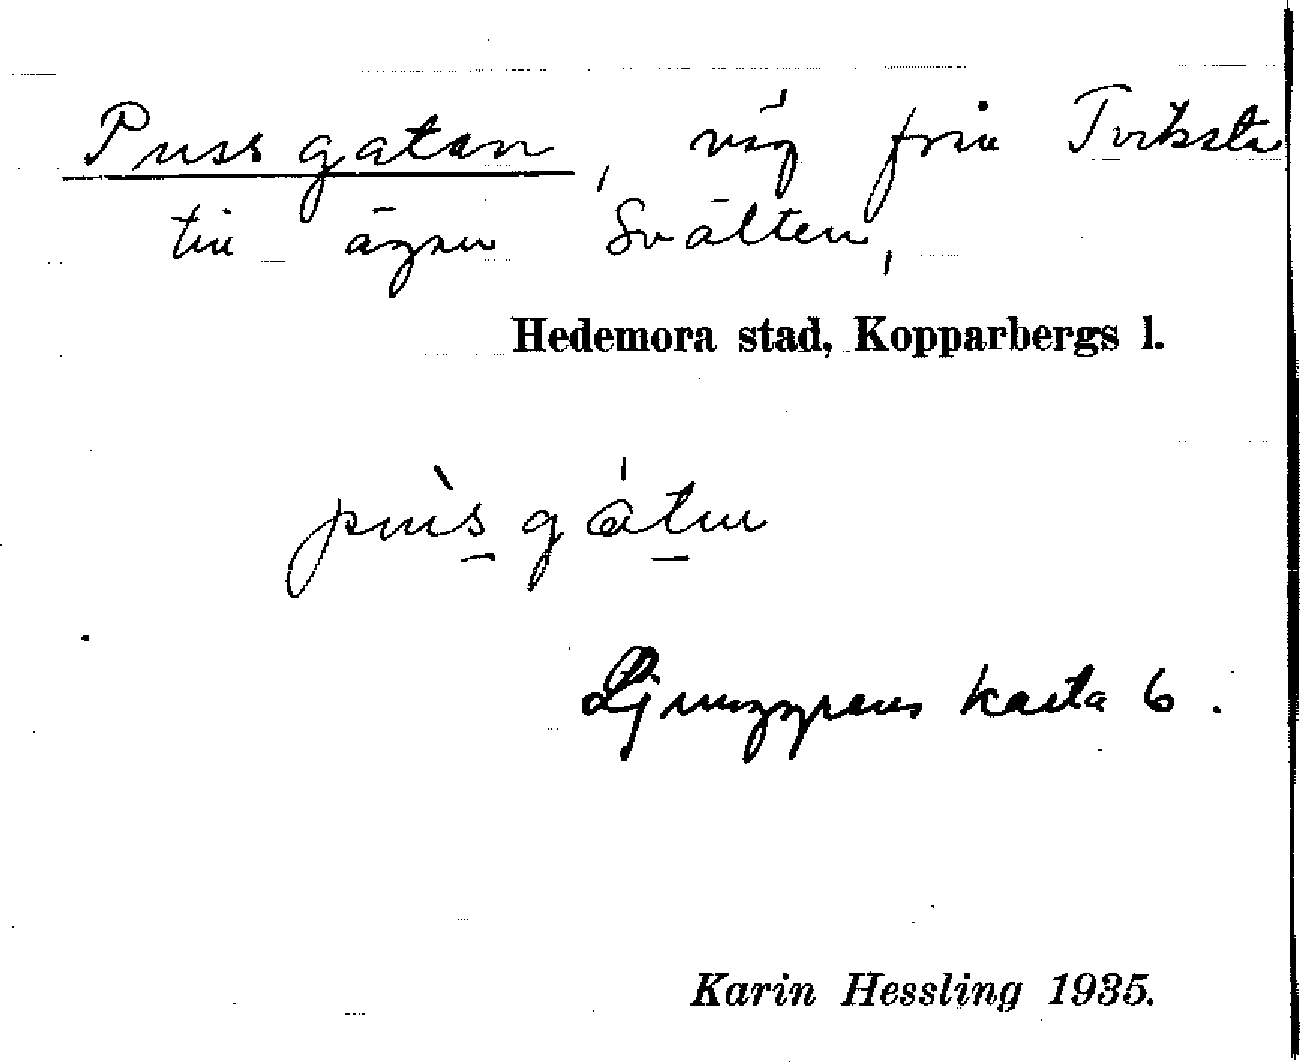 Pussgatan, väg från Tviksta
till ägan Svälten,
Hedemora stad, Kopparbergs l.
pùs gátn
Ljunggrens karta 6.
Karin Hessling 1935.